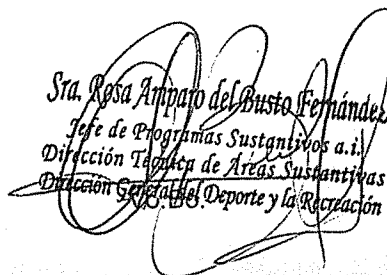 Sra. Rosa Amparo del Busto Fernández
Jefe de Programas Sustantivos a.i.
Dirección Técnica de Áreas Sustantivas
Dirección General del Deporte y la Recreación
Vo. Bo.